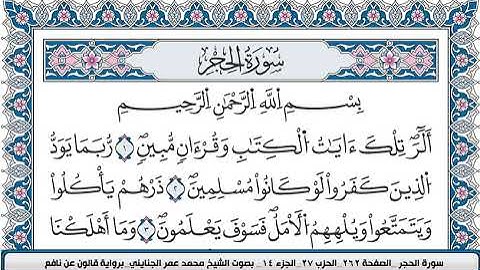 سُورَةُ الْحِجْرِ
بِسْمِ اللَّهِ الرَّحْمَٰنِ الرَّحِيمِ
أَلَٓرۖ تِلْكَ ءَايَٰتُ الْكِتَٰبِ وَقُرْءَانٖ مُّبِينٖۖ ١ رُّبَمَا يَوَدُّ
الذِينَ كَفَرُواْ لَوْ كَانُواْ مُسْلِمِينَۖ ٢ ذَرْهُمْ يَأْكُلُواْ
وَيَتَمَتَّعُواْ وَيُلْهِهِمُ الْأَمَلُۖ فَسَوْفَ يَعْلَمُونَۖ ٣ وَمَا أَهْلَكْنَا
سورة الحجر _الصفحة ٢٦٢_ الحزب ٢٧_ الجزء ١٤ _ بصوت الشيخ محمد عمر الجنايني_ برواية قالون عن نافع